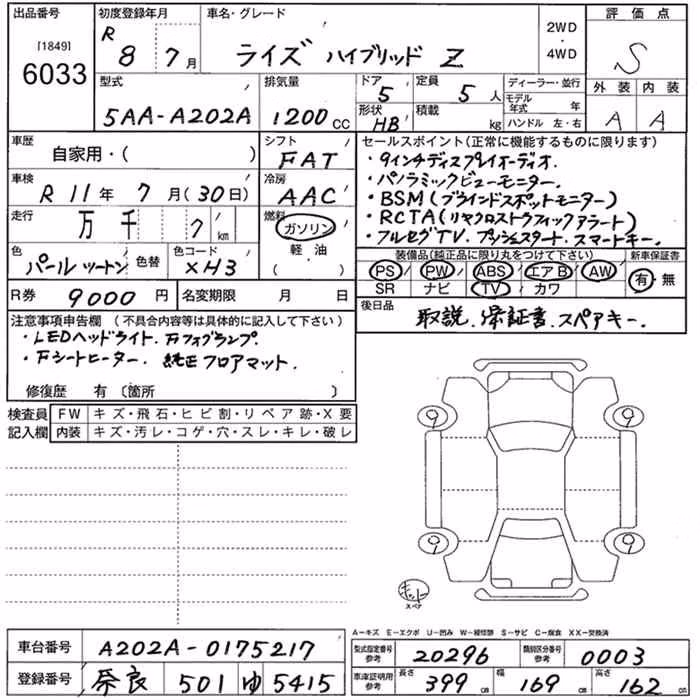 出品番号 [1849] 6033
初度登録年月 R 8年 7月
車名・グレード ライズ ハイブリッド Z
2WD ・ 4WD
評価点 S
外装 A 内装 A
型式 5AA-A202A
排気量 1200 CC
ドア 5 形状 HB
定員 5人 積載 kg
ディーラー・並行
モデル年式 年
ハンドル 左・右
車歴 自家用・( )
シフト FAT
車検 R 11年 7月(30日)
冷房 AAC
走行 万 千 7 km
燃料 ガソリン 軽油
色 パール ツートン 色替
色コード XH3
R券 9000 円
名変期限 月 日
セールスポイント(正常に機能するものに限ります)
・9インチディスプレイオーディオ.
・パノラミックビューモニター.
・BSM(ブラインドスポットモニター)
・RCTA(リヤクロストラフィックアラート)
・フルセグTV. プッシュスタート. スマートキー.
装備品(純正品に限り丸をつけて下さい) 新車保証書
PS PW ABS エアB AW 有・無
SR ナビ TV カワ
後日品 取説. 保証書. スペアキー.
注意事項申告欄 (不具合内容等は具体的に記入して下さい)
・LEDヘッドライト. Fフォグランプ.
・Fシートヒーター. 純正フロアマット.
修復歴 有 〔箇所 〕
検査員記入欄
FW キズ・飛石・ヒビ割・リペア跡・X要
内装 キズ・汚レ・コゲ・穴・スレ・キレ・破レ
9 9
9 9
キット
スペア
A－キズ E－エクボ U－凹み W－補修跡 S－サビ C－腐食 XX－交換済
車台番号 A202A-0175217
登録番号 奈良 501 ゆ 5415
型式指定番号 参考 20296
類別区分番号 参考 0003
車庫証明用 参考 長さ 399 cm 幅 169 cm 高さ 162 cm